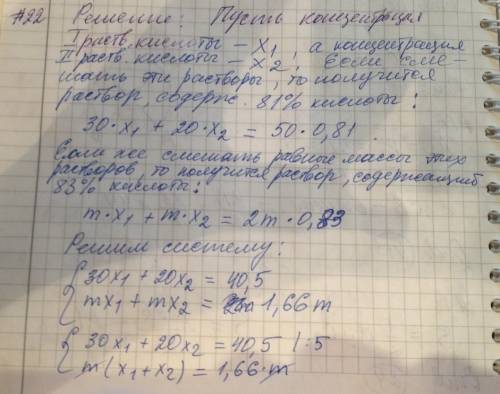 #22 Решение: Пусть концентрация
I раств. кислоты – x₁, а концентрация
II раств. кислоты – x₂, Если сме-
шать эти растворы, то получится
раствор, содерж. 81% кислоты:
30·x₁ + 20·x₂ = 50·0,81.
Если же смешать равные массы этих
растворов, то получится раствор, содержащий
83% кислоты:
m·x₁ + m·x₂ = 2m·0,83
Решим систему:
{ 30x₁ + 20x₂ = 40,5
mx₁ + mx₂ = 1,66m
{ 30x₁ + 20x₂ = 40,5 /:5
m(x₁ + x₂) = 1,66·m